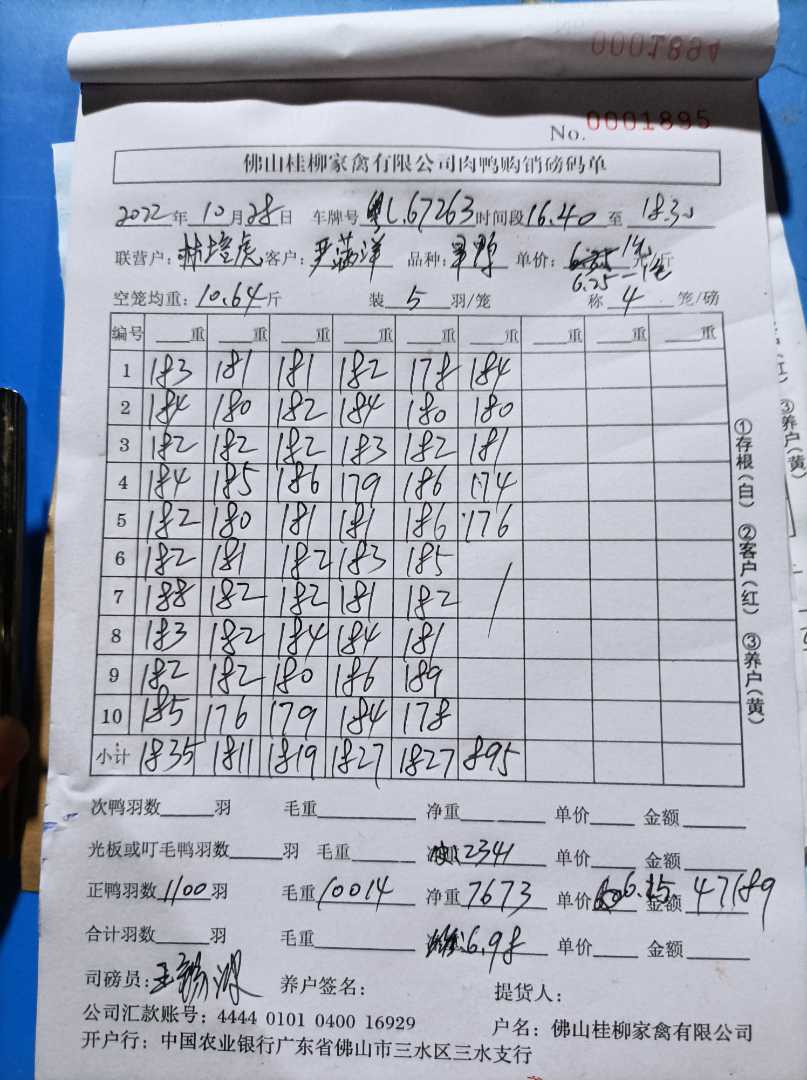 0001894
No. 0001895
佛山桂柳家禽有限公司肉鸭购销磅码单
2022年10月28日 车牌号 粤L.67263 时间段 16.40 至 18.30
联营户: 林 虎 客户: 尹 洋 品种: 鸭 单价: 元/斤
6.25
空笼均重: 10.64斤 装 5 羽/笼 称 4 笼/磅
编号 重 重 重 重 重 重 重 重 重
1 183 181 181 182 178 184
2 184 180 182 184 180 180
3 182 182 182 183 182 181
4 184 185 186 179 186 174
5 182 180 181 181 186 176
6 182 181 182 183 185
7 188 182 182 181 182
8 183 182 184 184 181
9 182 182 180 186 189
10 185 176 179 184 178
小计 1835 1811 1819 1827 1827 895
①存根(白) ②客户(红) ③养户(黄)
③养户(黄)
次鸭羽数 羽 毛重 净重 单价 金额
光板或叮毛鸭羽数 羽 毛重 2341 单价 金额
正鸭羽数 1100 羽 毛重 10014 净重 7673 单价 6.15 金额 47189
合计羽数 羽 毛重 6.98 单价 金额
司磅员: 王 养户签名: 提货人:
公司汇款账号: 4444 0101 0400 16929 户名: 佛山桂柳家禽有限公司
开户行: 中国农业银行广东省佛山市三水区三水支行